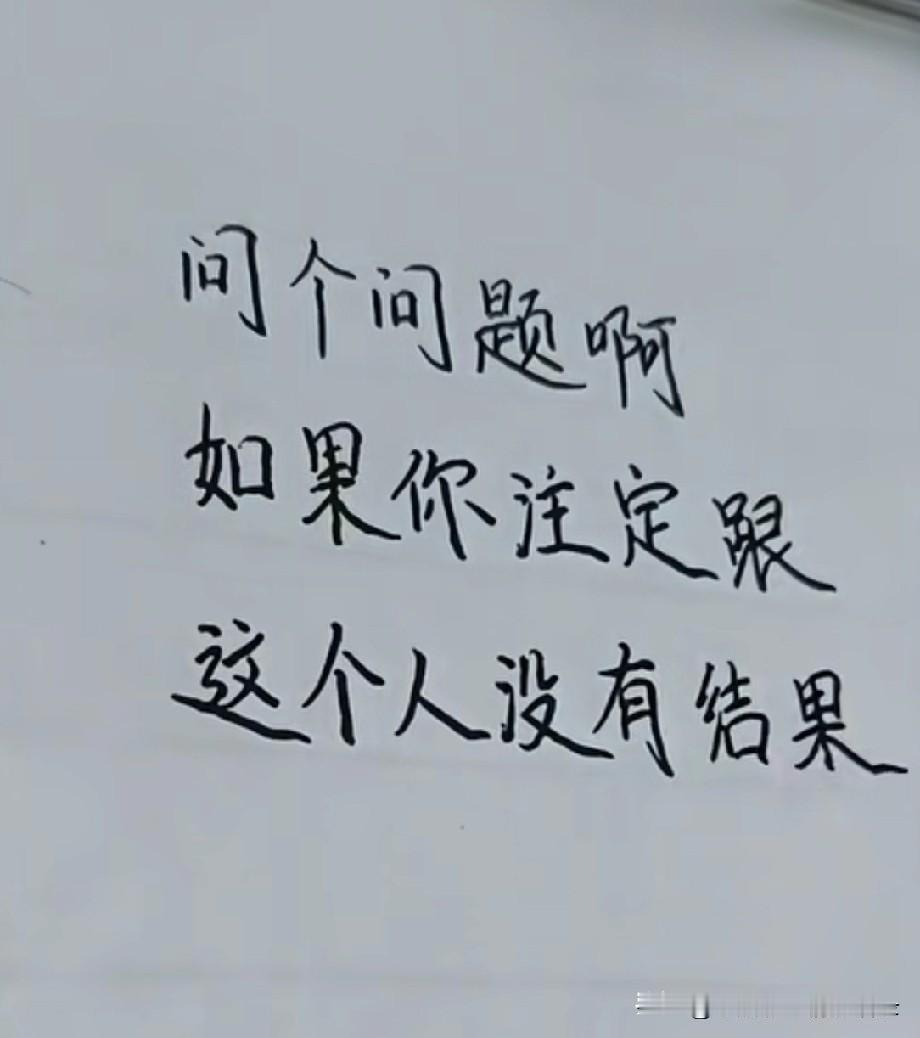 问个问题啊
如果你注定跟
这个人没有结果